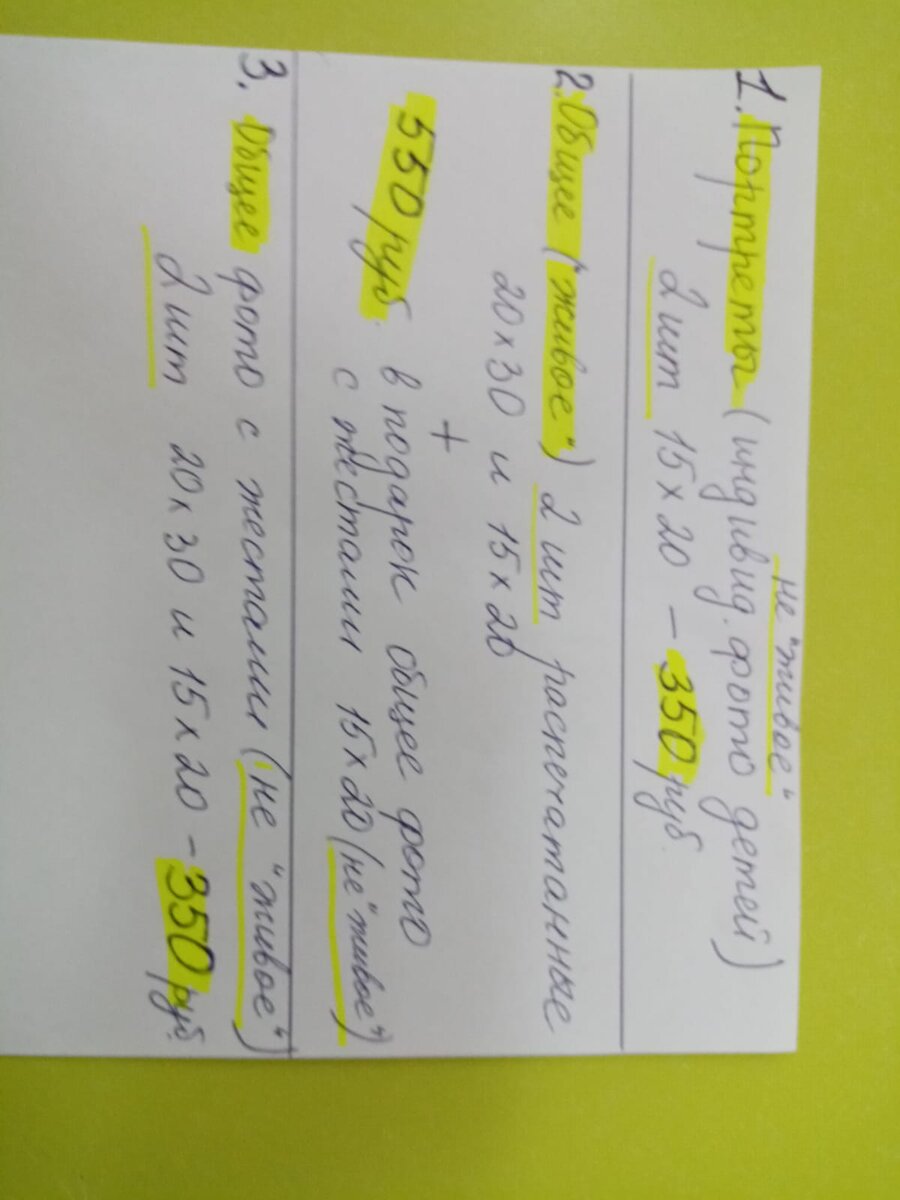 не "живое"
1. Портреты (индивид. фото детей)
2 шт 15 x 20 - 350 руб.
2. Общее ("живое") 2 шт распечатанные
20 x 30 и 15 x 20
+
550 руб. в подарок общее фото
с жестами 15 x 20 (не "живое")
3. Общее фото с жестами (не "живое")
2 шт 20 x 30 и 15 x 20 - 350 руб.